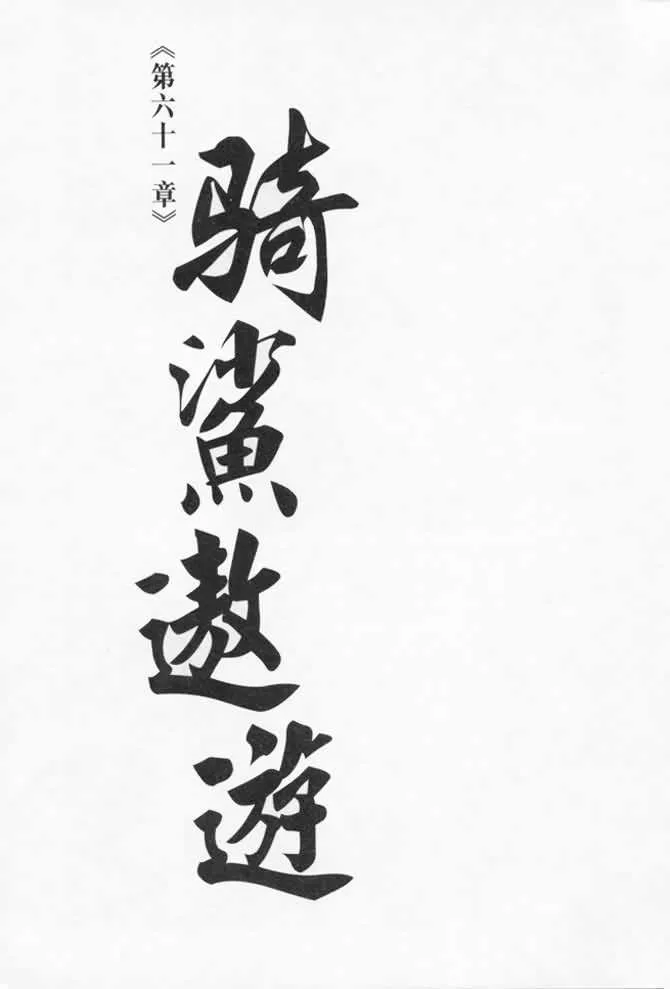 《第六十一章》
骑鯊遨遊